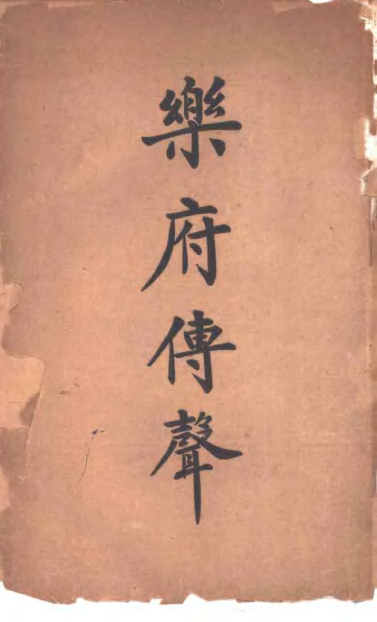 樂府傳聲